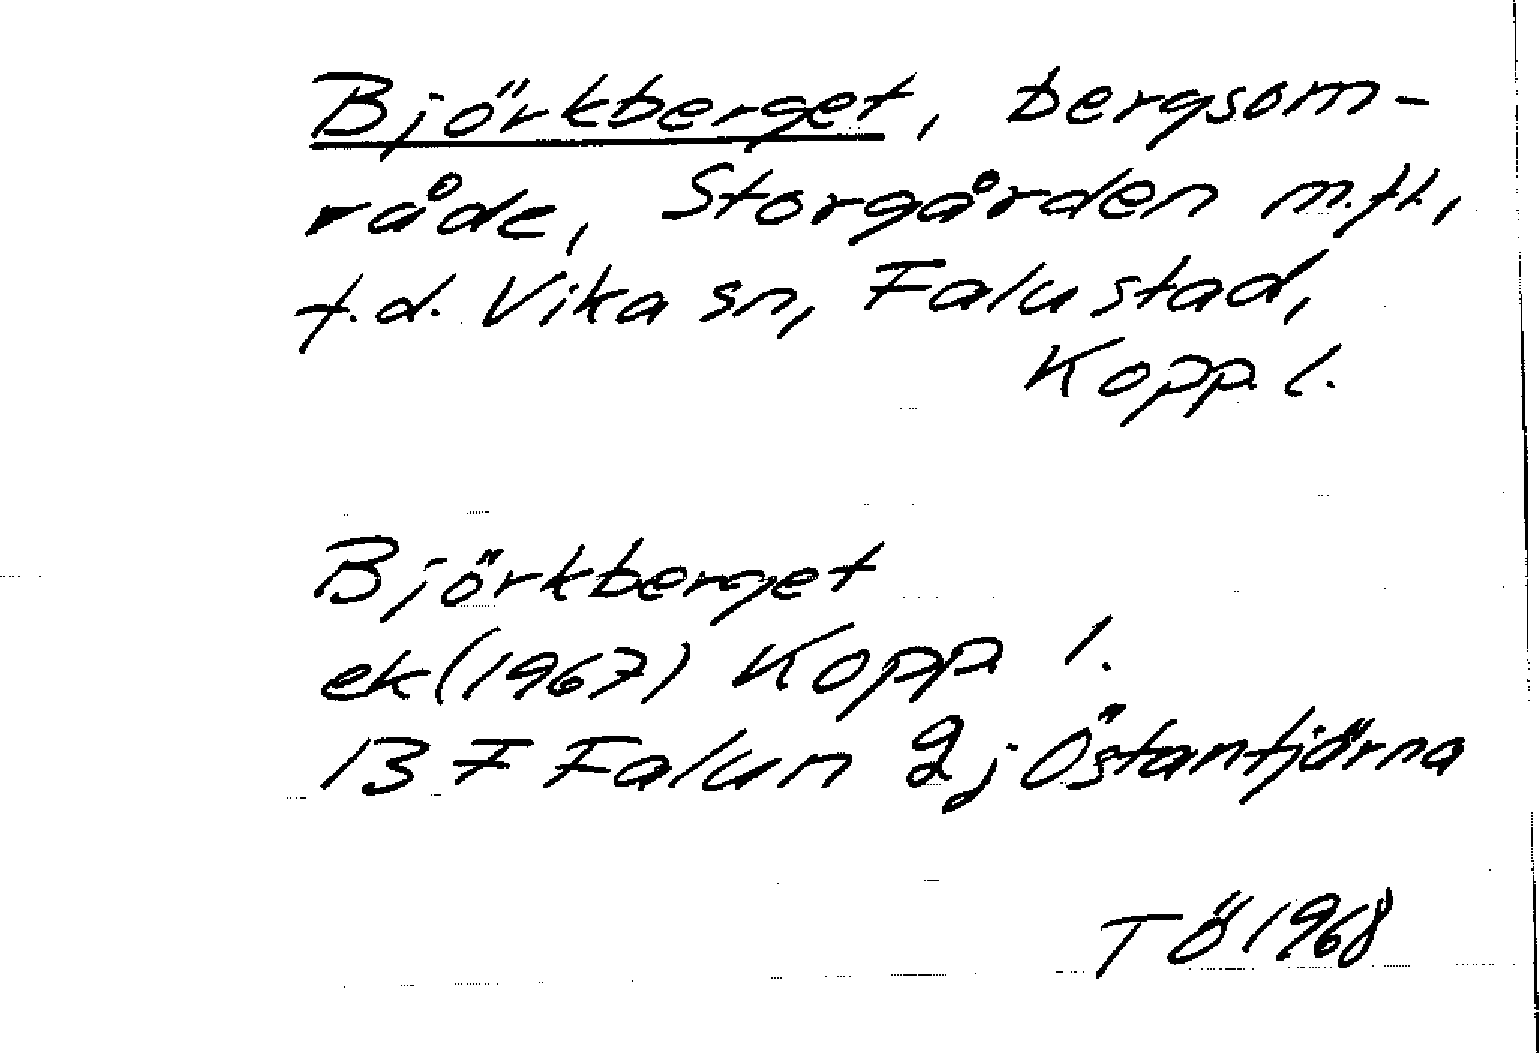 Björkberget, bergsom-
råde, Storgården m.fl.,
f.d. Vika sn, Falu stad,
Kopp. l.
Björkberget
ek (1967) Kopp l.
13 F Falun 2j Östantjärna
TÖ 1968